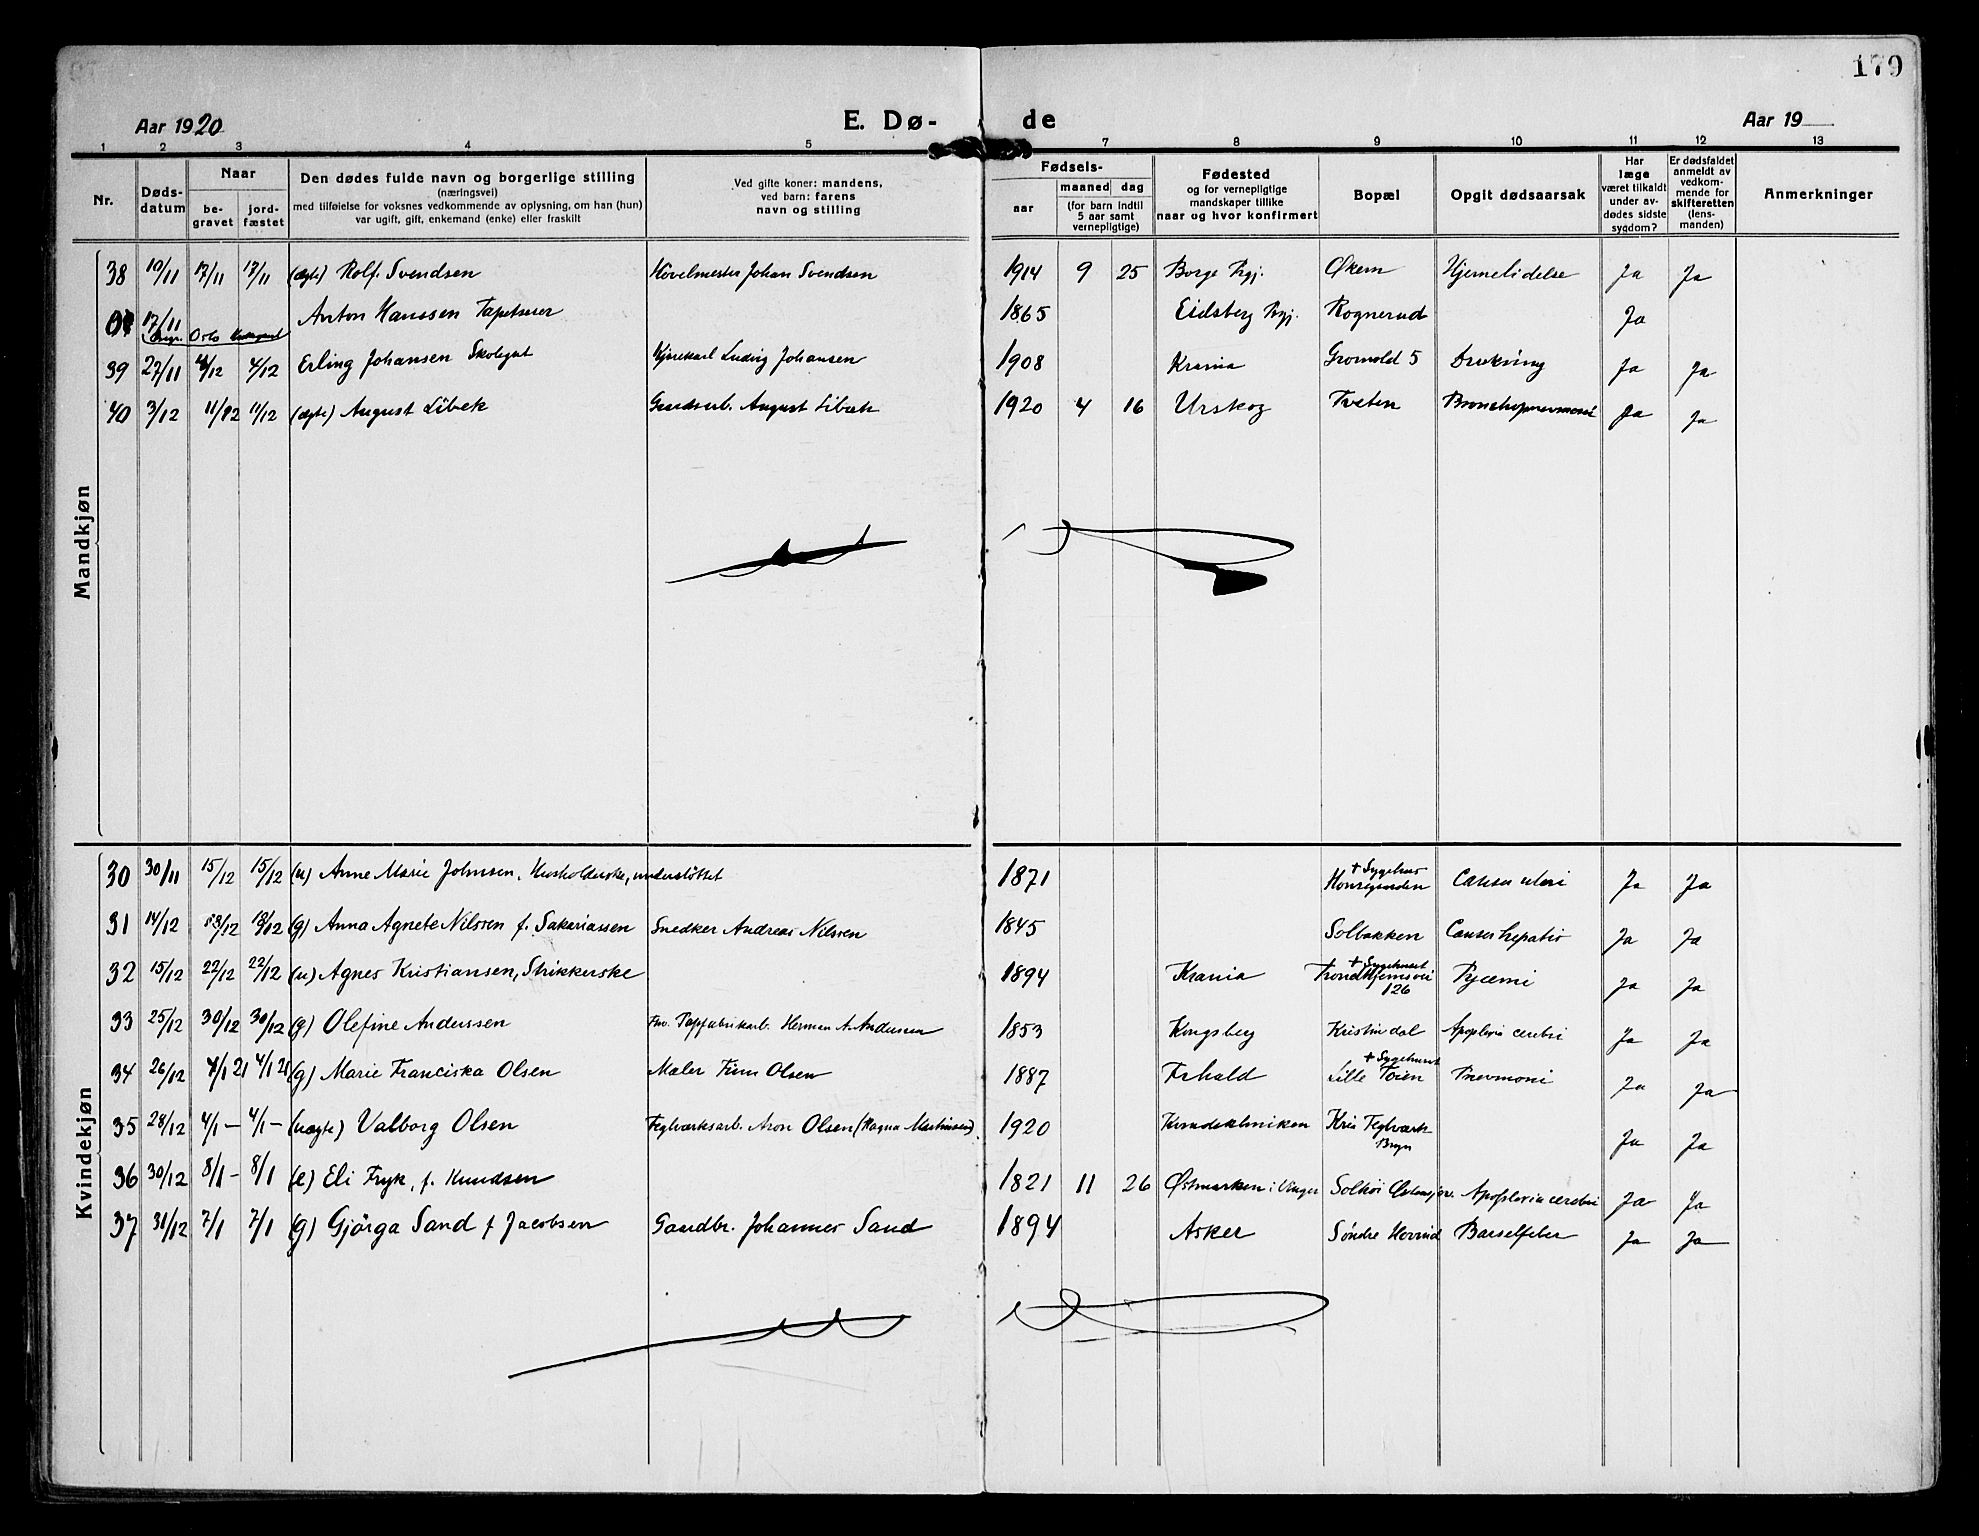 179
Aar 1920 E. Dø- de Aar 19
1 2 3 4 5 7 8 9 10 11 12 13
Nr. Døds-datum Naar be-gravet jord-fæstet Den dødes fulde navn og borgerlige stilling (næringsvei) med tilføielse for voksnes vedkommende av oplysning, om han (hun) var ugift, gift, enkemand (enke) eller fraskilt Ved gifte koner: mandens, ved barn: farens navn og stilling Fødsels- aar maaned dag (for barn indtil 5 aar samt vernepligtige) Fødested og for vernepligtige mandskaper tillike naar og hvor konfirmert Bopæl Opgit dødsaarsak Har læge været tilkaldt under av-dødes sidste sygdom? Er dødsfaldet anmeldt av vedkom-mende for skifteretten (lens-manden) Anmerkninger
Mandkjøn
38 19/11 17/11 17/11 (ægte) Rolf. Svendsen Hövelmester Johan Svendsen 1914 9 25 Borge Prgj. Økern Hjernelidelse Ja Ja
17/11 Anton Hanssen Tapetserer 1865 Eidsberg Prgj. Rognerud Ja
Oslo
39 27/11 4/12 4/12 Erling Johansen Skolegut Kjörekarl Ludvig Johansen 1908 Krania Gromold 5 Drukning Ja Ja
40 3/12 11/12 11/12 (ægte) August Libek Gaardsarb. August Libek 1920 4 16 Urskog Tveten Bronchopnevmoni Ja Ja
Kvindekjøn
30 30/11 15/12 15/12 (u) Anne Marie Johnsen, Husholderske, understöttet 1871 + Sygehus Cancer uteri Ja Ja
31 14/12 18/12 18/12 (g) Anna Agnete Nilssen f. Sakariassen Snedker Andreas Nilssen 1845 Solbakken Cancer hepatis Ja Ja
32 15/12 22/12 22/12 (u) Agnes Kristiansen, Strikkerske 1894 Krania + Sygehuset Trondhjemsvei 126 Pyæmi Ja Ja
33 25/12 30/12 30/12 (g) Olefine Anderssen Fhv. Papfabrikarb. Herman A. Andersen 1853 Kongsberg Kristindal Apoplexia cerebri Ja Ja
34 26/12 4/1 21 4/1 21 (g) Marie Franciska Olsen Maler Finn Olsen 1887 Frhald + Sygehuset Lille Töien Pnevmoni Ja Ja
35 28/12 4/1 – 4/1 – (uægte) Valborg Olsen Teglværksarb. Aron Olsen (Ragna Martinsen). 1920 Kvindekliniken Kria Teglværk Bryn Ja Ja
36 30/12 8/1 – 8/1 (e) Eli Fryk, f. Knudsen 1821 11 26 Østmarken i Vinger Solhöi Østensjøv. Apoplexia cerebri Ja Ja
37 31/12 7/1 7/1 (g) Gjörga Sand f Jacobsen Gaardbr. Johannes Sand 1894 Asker Söndre Hovind Barselfeber Ja Ja